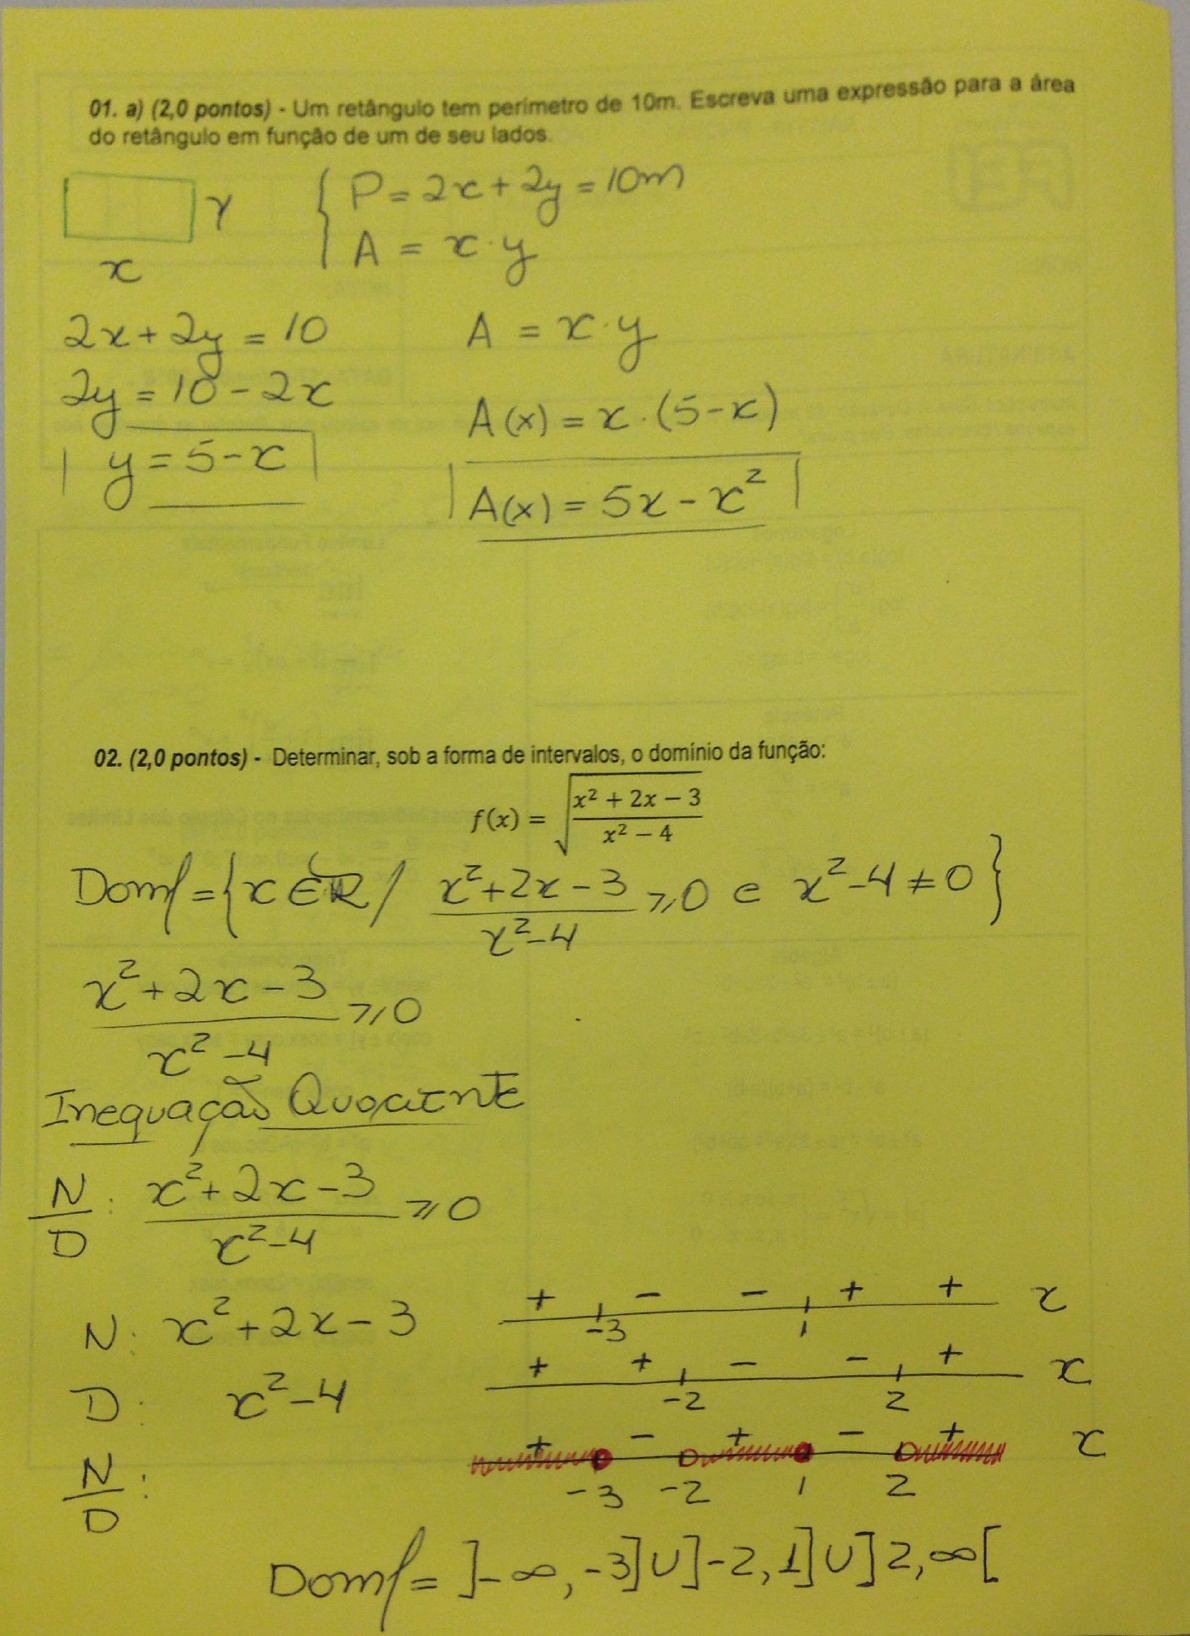 01. a) (2,0 pontos) - Um retângulo tem perímetro de 10m. Escreva uma expressão para a área
do retângulo em função de um de seu lados.
y
x
P = 2x + 2y = 10m
A = x · y
2x + 2y = 10
2y = 10 - 2x
y = 5 - x
A = x · y
A(x) = x · (5 - x)
A(x) = 5x - x²
02. (2,0 pontos) - Determinar, sob a forma de intervalos, o domínio da função:
f(x) = √((x² + 2x − 3)/(x² − 4))
Domf = {x ∈ R / (x² + 2x - 3)/(x² - 4) ≥ 0 e x² - 4 ≠ 0}
(x² + 2x - 3)/(x² - 4) ≥ 0
Inequação Quociente
N/D : (x² + 2x - 3)/(x² - 4) ≥ 0
N: x² + 2x - 3
+ - - + + x
-3 1
D: x² - 4
+ + - - + x
-2 2
N/D :
+ - + - + x
-3 -2 1 2
Domf = ]-∞, -3] U ]-2, 1] U ]2, ∞[